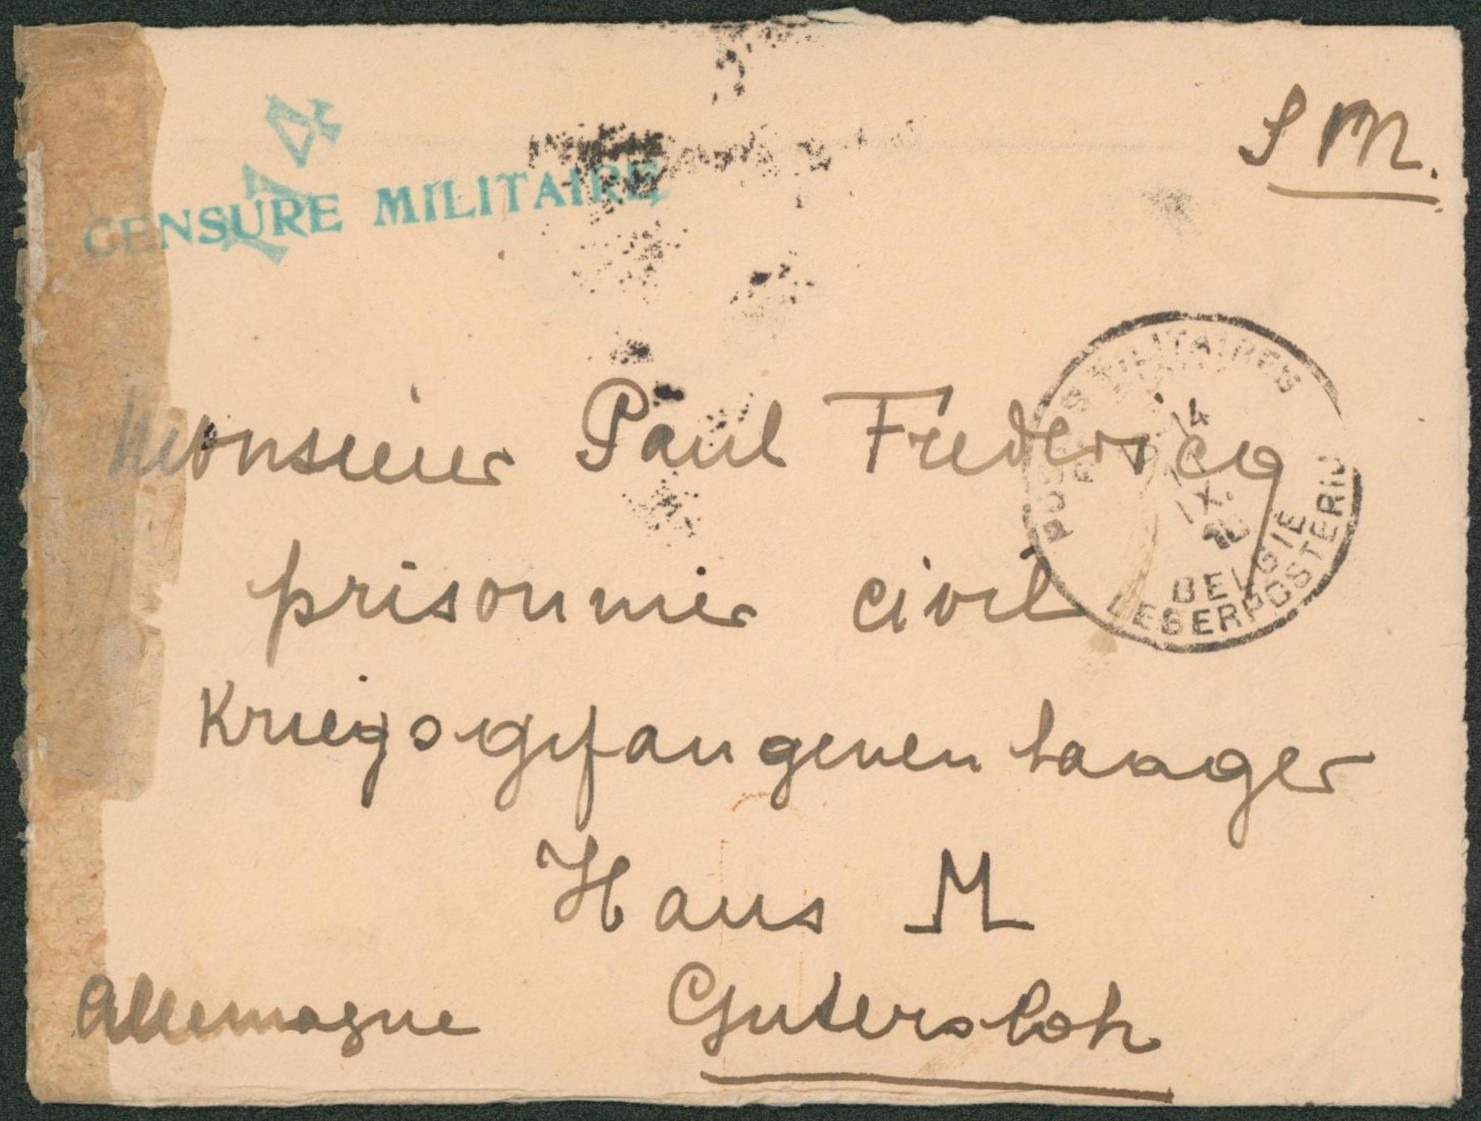 S M.
CENSURE MILITAIRE
POSTES MILITAIRES
14
IX.
BELGIE
LEGERPOSTERIJ
Monsieur Paul Fredericq
prisonnier civil
Kriegsgefangenen Laager
Haus M
Allemagne Gutersloh